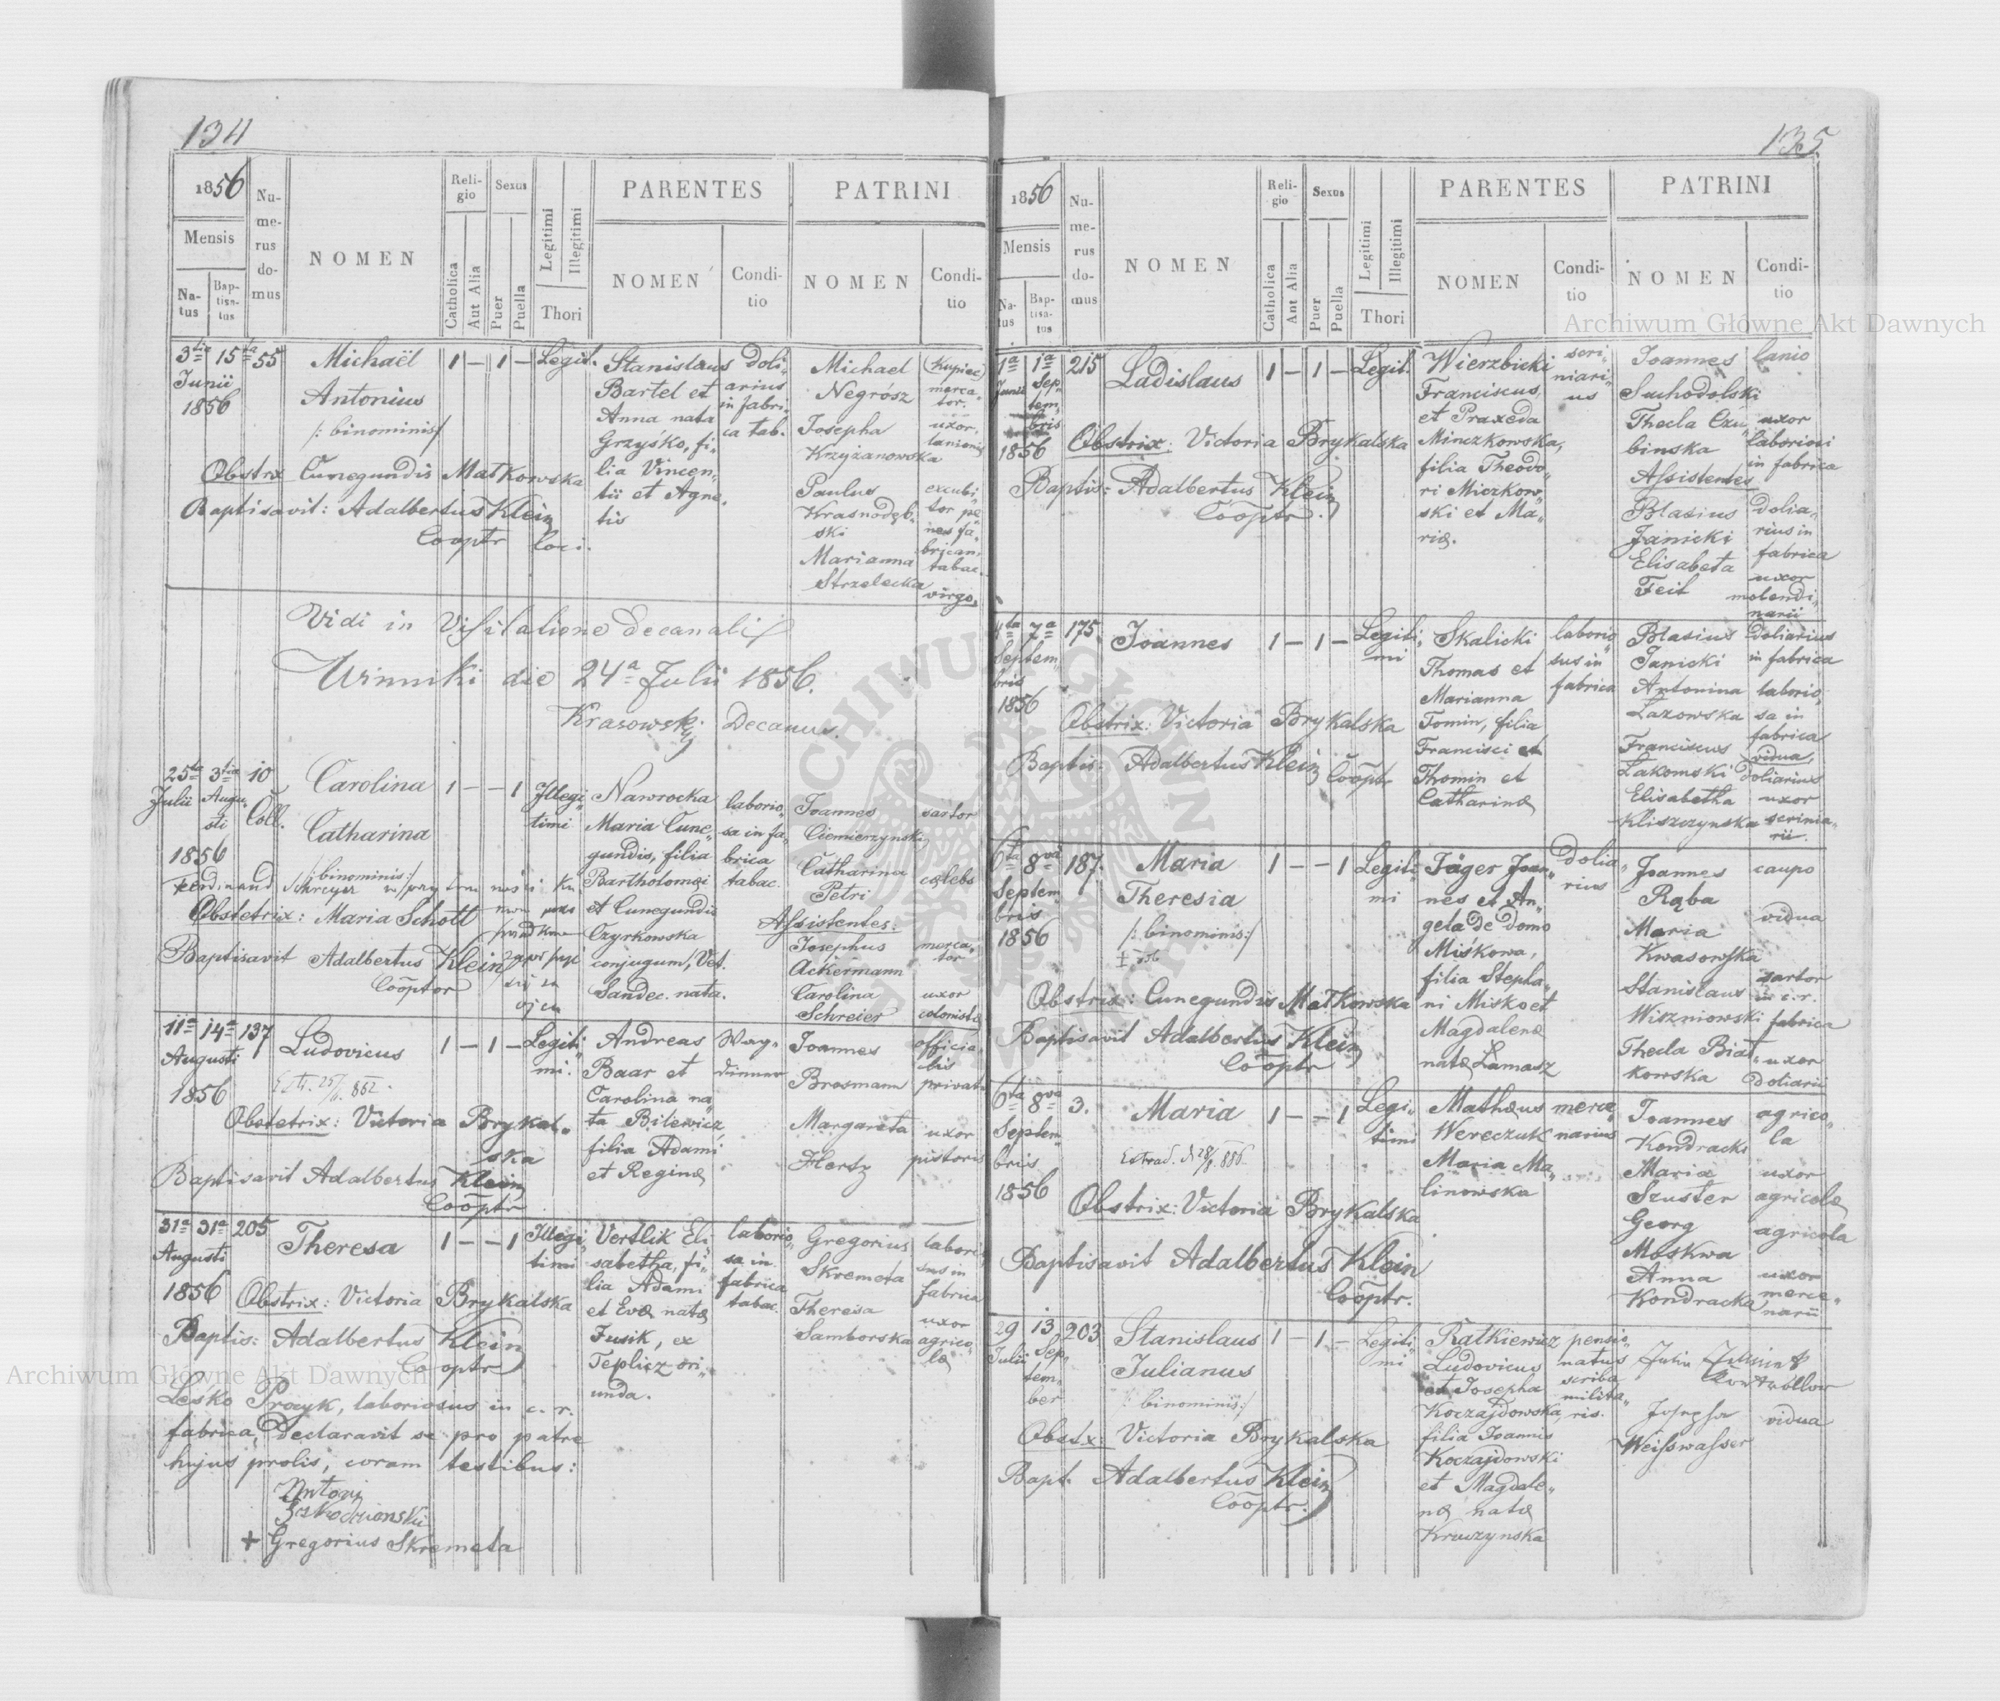 134
1856
Mensis
Na-
tus
Bap-
tisa-
tus
Nu-
me-
rus
do-
mus
NOMEN
Reli-
gio
Catholica
Aut Alia
Sexus
Puer
Puella
Legitimi
Illegitimi
Thori
PARENTES
NOMEN
Condi-
tio
PATRINI
NOMEN
Condi-
tio
3tia 15ta 55
Junii
1856
Michaël
Antonius
/: binominis:/
1 — 1 — Legit.
Obstrx Cunegundis Matkowska
Baptisavit: Adalbertus Klein
Cooptr loci.
Stanislaus
Bartel et
Anna nata
Grzyśko, fi-
lia Vincen-
tii et Agne-
tis
doli-
arius
in fabri-
ca tab.
Michael
Negrósz
Josepha
Krzyżanowska
Paulus
Krasnodęb-
ski
Marianna
Strzelecka
(Kupiec)
merca-
tor.
uxor
lanionis
excubi-
tor pe
nes fa-
brican.
tabac.
virgo.
Vidi in Visitatione decanali
Winniki die 24a Julii 1856.
Krasowski Decanus.
25ta 3tia 10
Julii Augu-
sti Coll.
1856
Carolina
Catharina
/: binominis:/
1 — — 1 Illegi-
timi
Ferdinand Schreyer
Obstetrix: Maria Schott
Baptisavit Adalbertus Klein
Cooptor
Nawrocka
Maria Cune-
gundis, filia
Bartholomæi
et Cunegundis
Czyrkowska
conjugum, Vet.
Sandec. nata.
laborio-
sa in fa-
brica
tabac.
Joannes
Ciemierzynski
Catharina
Petri
Assistentes:
Josephus
Ackermann
Carolina
Schreier
sartor
cælebs
merca-
tor
uxor
colonistæ
11a 14a 137
Augusti
1856
Ludovicus
1 — 1 — Legiti-
mi.
Obstetrix: Victoria Brykal-
ska
Baptisavit Adalbertus Klein
Cooptr
Andreas
Baar et
Carolina na-
ta Bilewicz,
filia Adami
et Reginæ
Way-
dinner
Joannes
Brosmann
Margareta
Hertz
officia-
lis
privat.
uxor
pistoris
31a 31a 205
Augusti
1856
Theresa
1 — — 1 Illegi-
timi
Obstrix: Victoria Brykalska
Baptis: Adalbertus Klein
Cooptr
Vertlik Eli
sabetha, fi-
lia Adami
et Evæ natæ
Fusik, ex
Teplicz ori-
unda.
laborio-
sa in
fabrica
tabac.
Gregorius
Skremeta
Theresa
Samborska
labori-
sus in
fabrica
uxor
agrico-
læ
Lesko Procyk, laboriosus in c. r.
fabrica, declaravit se pro patre
hujus prolis, coram testibus:
Antoni
+ Gregorius Skremeta
135
1856
Mensis
Na-
tus
Bap-
tisa-
tus
Nu-
me-
rus
do-
mus
NOMEN
Reli-
gio
Catholica
Aut Alia
Sexus
Puer
Puella
Legitimi
Illegitimi
Thori
PARENTES
NOMEN
Condi-
tio
PATRINI
NOMEN
Condi-
tio
1a 1a 215
Sep-
tem-
bris
1856
Ladislaus
1 — 1 — Legit.
Obstrix: Victoria Brykalska
Baptis: Adalbertus Klein
Cooptr.
Wierzbicki
Franciscus,
et Praxeda
Minczkowska,
filia Theodo-
ri Miczkow-
ski et Ma-
riæ.
scri-
niari-
us
Joannes
Suchodolski
Thecla Czu-
binska
Assistentes
Blasius
Janicki
Elisabeta
Feit
lanio
uxor
laboriosi
in fabrica
dolia-
rius in
fabrica
uxor
molendi-
narii
4ta 7a 175.
Septem-
bris
1856
Joannes
1 — 1 — Legiti-
mi
Obstrix: Victoria Brykalska
Baptis: Adalbertus Klein Cooptr
Skalicki
Thomas et
Marianna
Tomin, filia
Francisci et
Thomin et
Catharinæ
laborio-
sus in
fabrica
Blasius
Janicki
Antonina
Lazowska
Franciscus
Lakomski
Elisabetha
Kliszczynska
doliarius
in fabrica
laborio-
sa in
fabrica
vidua
doliarius
uxor
scrinia-
rii.
6ta 8va 187.
Septem-
bris
1856
Maria
Theresia
/: binominis:/
1 — — 1 Legiti-
mi
Obstrix: Cunegundis Matkowska
Baptisavit Adalbertus Klein
Cooptr
Jäger Joan-
nes et An-
gela de domo
Miśkowa,
filia Stepha-
ni Misko et
Magdalenæ
natæ Lamasz
dolia-
rius
Joannes
Rąba
Maria
Kwasowska
Stanislaus
Wiszniowski
Thecla Biał-
kowska
caupo
vidua
sartor
in c. r.
fabrica
uxor
doliarii
6ta 8va 3.
Septem-
bris
1856
Maria
1 — — 1 Legi-
timi
Obstrix: Victoria Brykalska
Baptisavit Adalbertus Klein
Cooptr.
Mathæus
Wereczuk
Maria Ma-
linowska
merce-
narius
Joannes
Kondracki
Maria
Szuster
Georg
Moskwa
Anna
Kondracka
agrico-
la
uxor
agricolæ
agricola
uxor
merce-
narii
29 13 203
Julii Sep-
tem-
ber
Stanislaus
Julianus
/: binominis:/
1 — 1 — Legiti-
mi
Obstx: Victoria Brykalska
Bapt. Adalbertus Klein
Cooptr.
Ratkiewicz
Ludovicus
et Josepha
Koczajdowska,
filia Joannis
Koczajdowski
et Magdale-
næ natæ
Kruczynska
pensio-
natus
scriba
milita-
ris.
Josepha
Weisswasser
vidua
Archiwum Główne Akt Dawnych
Archiwum Główne Akt Dawnych
ARCHIWUM GŁÓWNE AKT DAWNYCH